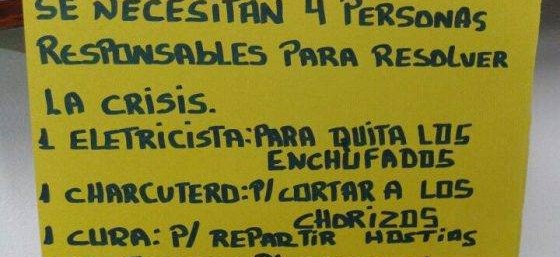 SE NECESITAN 4 PERSONAS
RESPONSABLES PARA RESOLVER
LA CRISIS.
1 ELETRICISTA: PARA QUITA LOS
ENCHUFADOS
1 CHARCUTERO: P/ CORTAR A LOS
CHORIZOS
1 CURA: P/ REPARTIR HOSTIAS